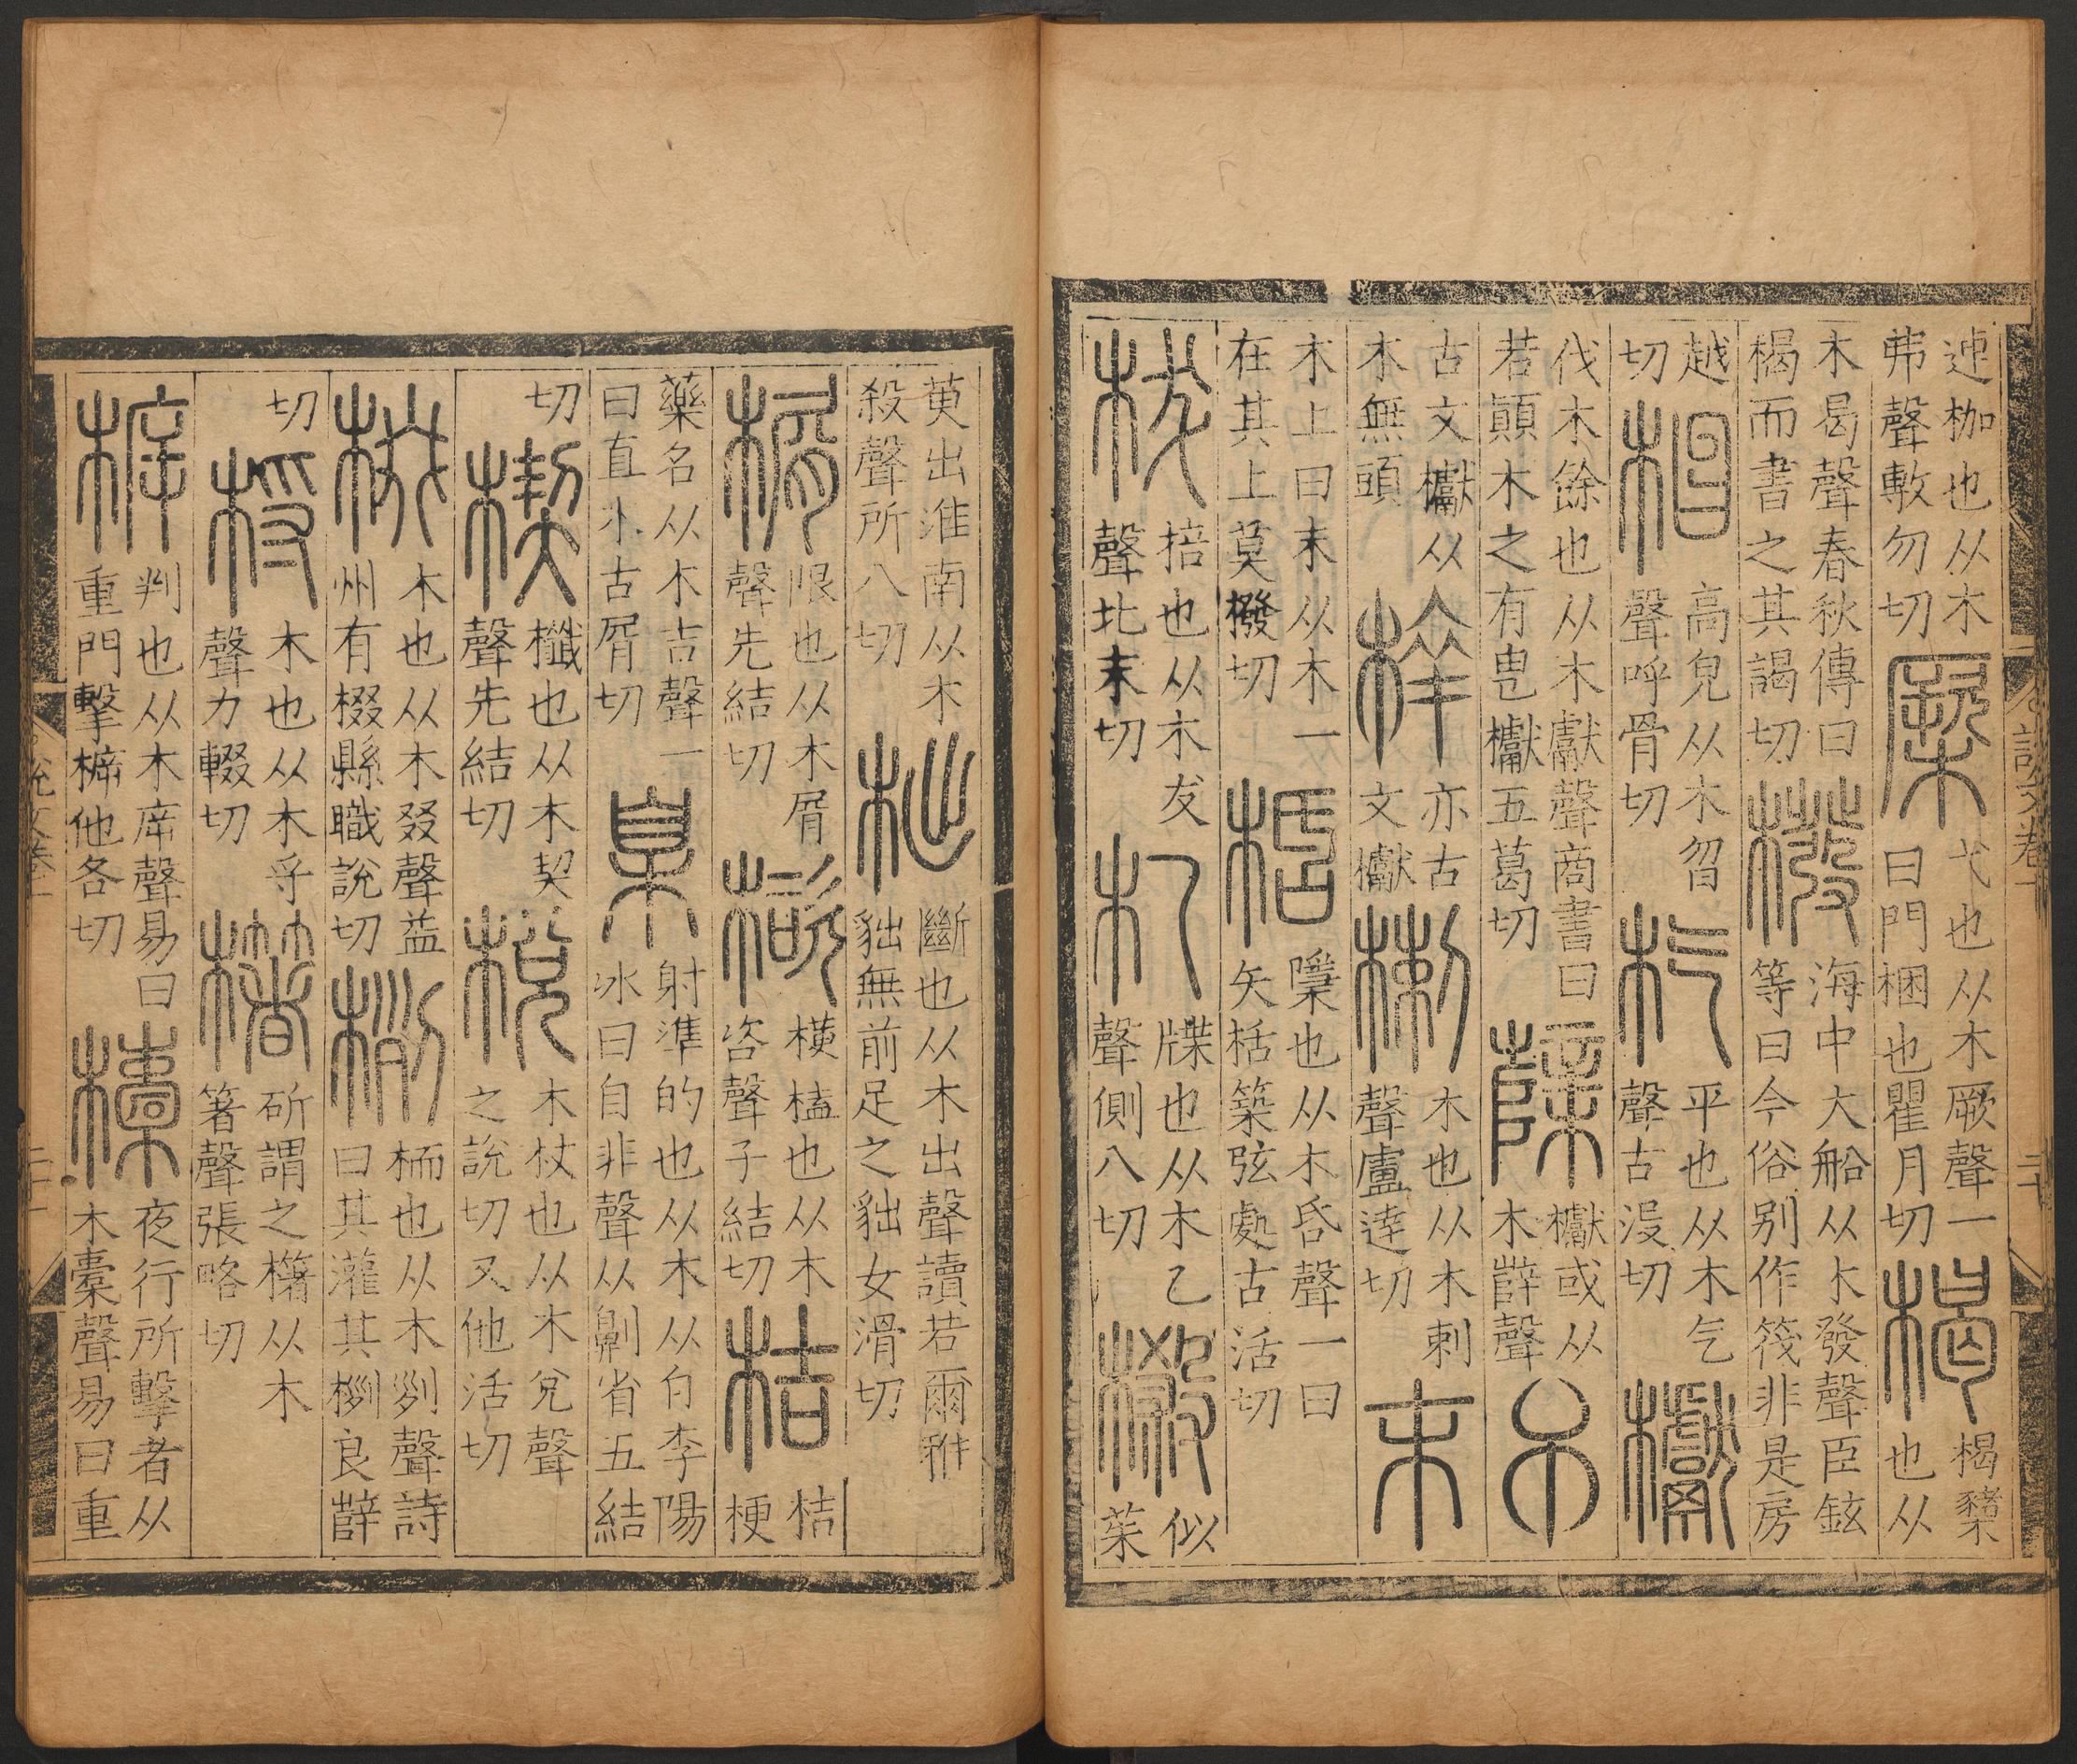 連枷也从木弗聲敷勿切橜弋也从木厥聲一曰門梱也瞿月切楬楬櫫也从
木曷聲春秋傳曰楬而書之其謁切橃海中大船从木發聲臣鉉等曰今俗别作筏非是房
越切㮧高皃从木曶聲呼骨切杚平也从木气聲古没切𣡌
伐木餘也从木獻聲商書曰若顛木之有㽕𣡌五葛切櫱𣡌或从木辥聲𣎴
古文𣡌从木無頭亦古文𣡌楋木也从木剌聲盧達切末
木上曰末从木一在其上莫撥切桰檃也从木𠯑聲一曰矢栝築弦處古活切
柭棓也从木犮聲北末切札牒也从木乙聲側八切樧似茱
說文卷
二十
萸出淮南从木殺聲所八切柮斷也从木出聲讀若爾雅貀無前足之貀女滑切
榍限也从木屑聲先結切橫榼也从木咨聲子結切桔桔梗
藥名从木吉聲一曰直木古屑切臬射準的也从木从自李陽冰曰自非聲从劓省五結
切楔櫼也从木契聲先結切梲木杖也从木兌聲之說切又他活切
棳木也从木叕聲益州有棳縣職說切栵栭也从木列聲詩曰其灌其栵良辥
切㭩木也从木寽聲力輟切櫡斫謂之櫡从木箸聲張略切
㯊判也从木㡿聲易曰重門擊㯊他各切㯓夜行所擊者从木橐聲易曰重
說文卷
二十一